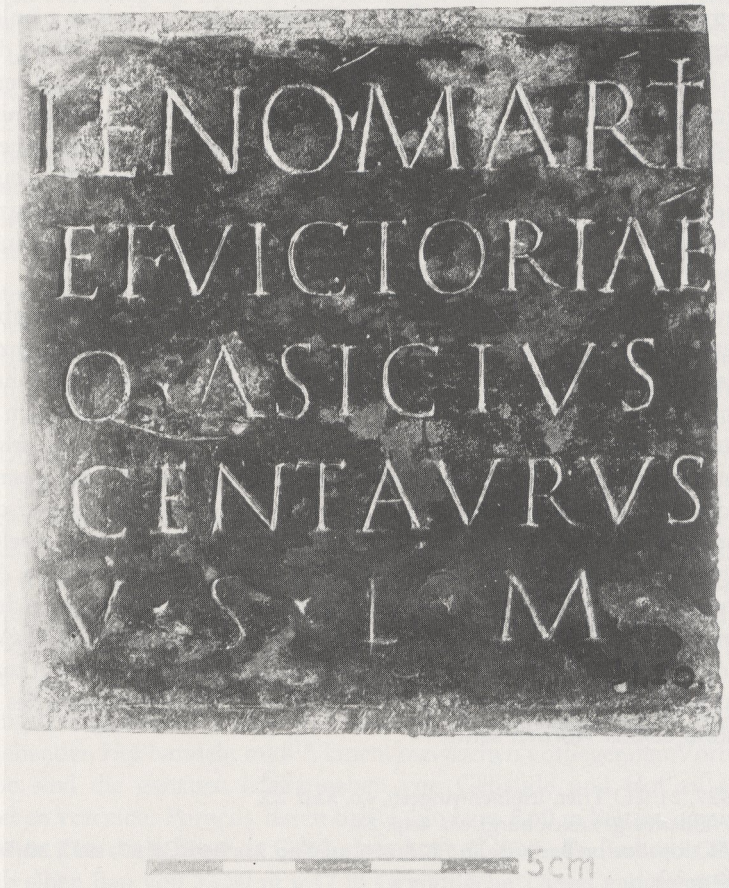 LENO·MARTI
ET VICTORIAE
Q·ASICIVS
CENTAVRVS
V·S·L·M
5cm